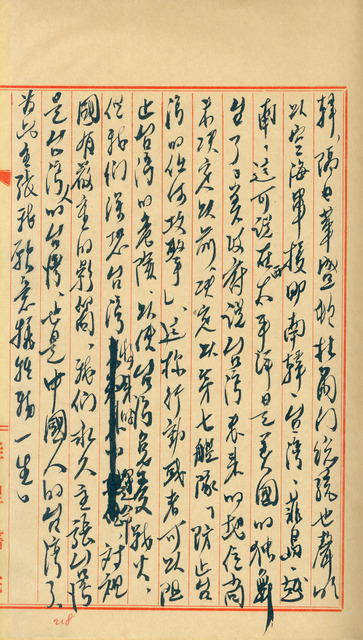 韓，隔日華盛頓杜爾門總統也聲明
以空海軍援助南韓，台灣，菲島，越
南，這可說在西太平洋日是美國的獨
生了了美政府說台灣未來的地位尚
未決定以前，決定以第七艦隊「防止台
灣的任何攻擊」，這種行動或者可以阻
止台灣的危險，以使台灣免受戰火，
但我們深恐台灣
國有嚴重的影響，我們永久主張台灣
是台灣人的台灣，也是中國人的台灣了，
為此主張我願意犧牲我一生。
218